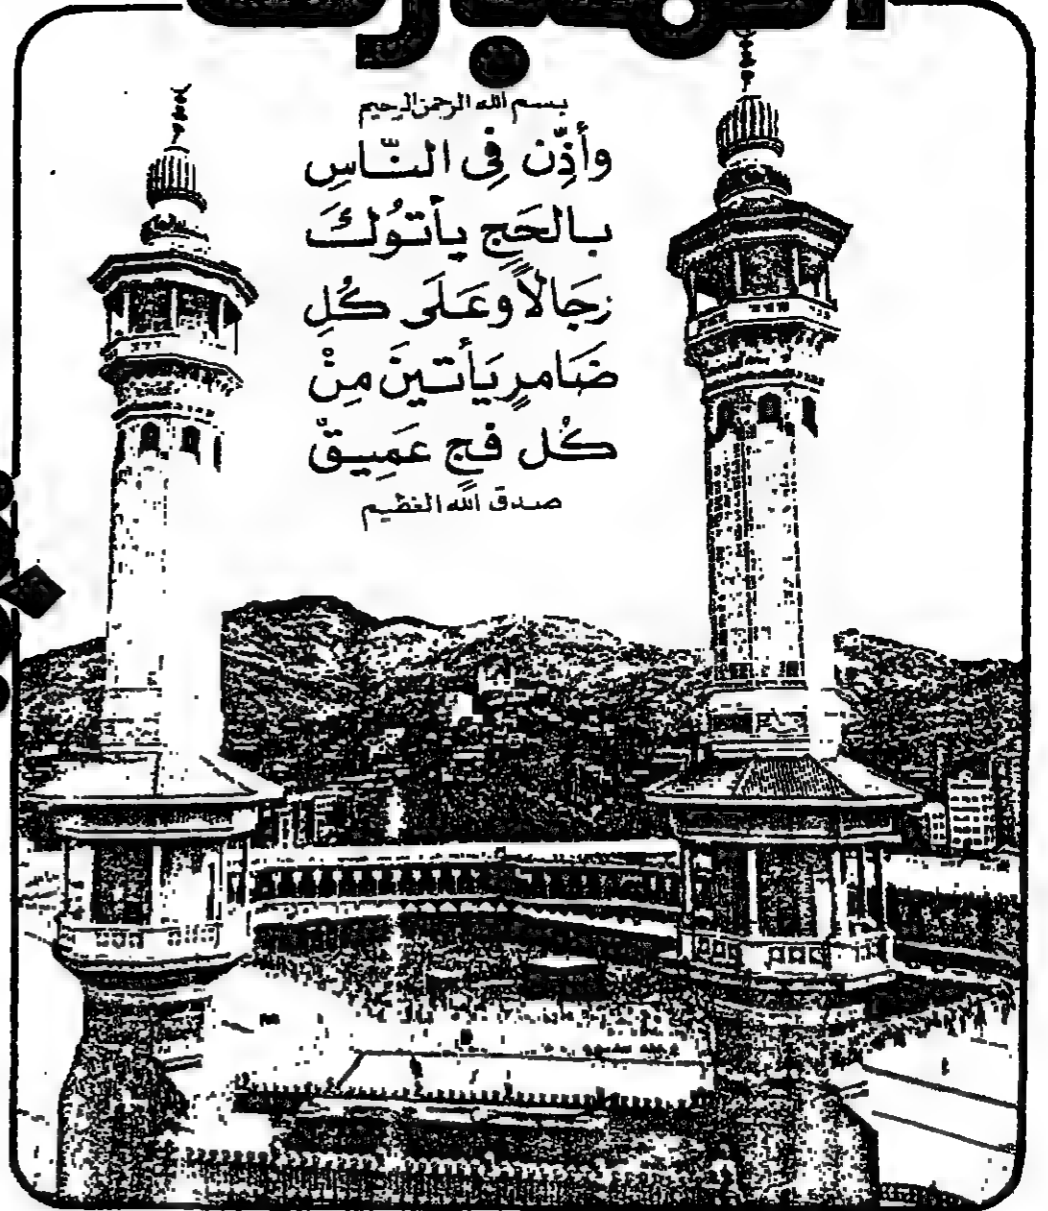 بسم الله الرحمن الرحيم
وأذِّن فِى النَّاسِ
بالحَجِ يأتُوكَ
رَجَالاً وعَلَى كُلِ
ضَامرٍ يَأتينَ مِنْ
كُل فجٍ عَمِيقْ
صدق الله العظيم